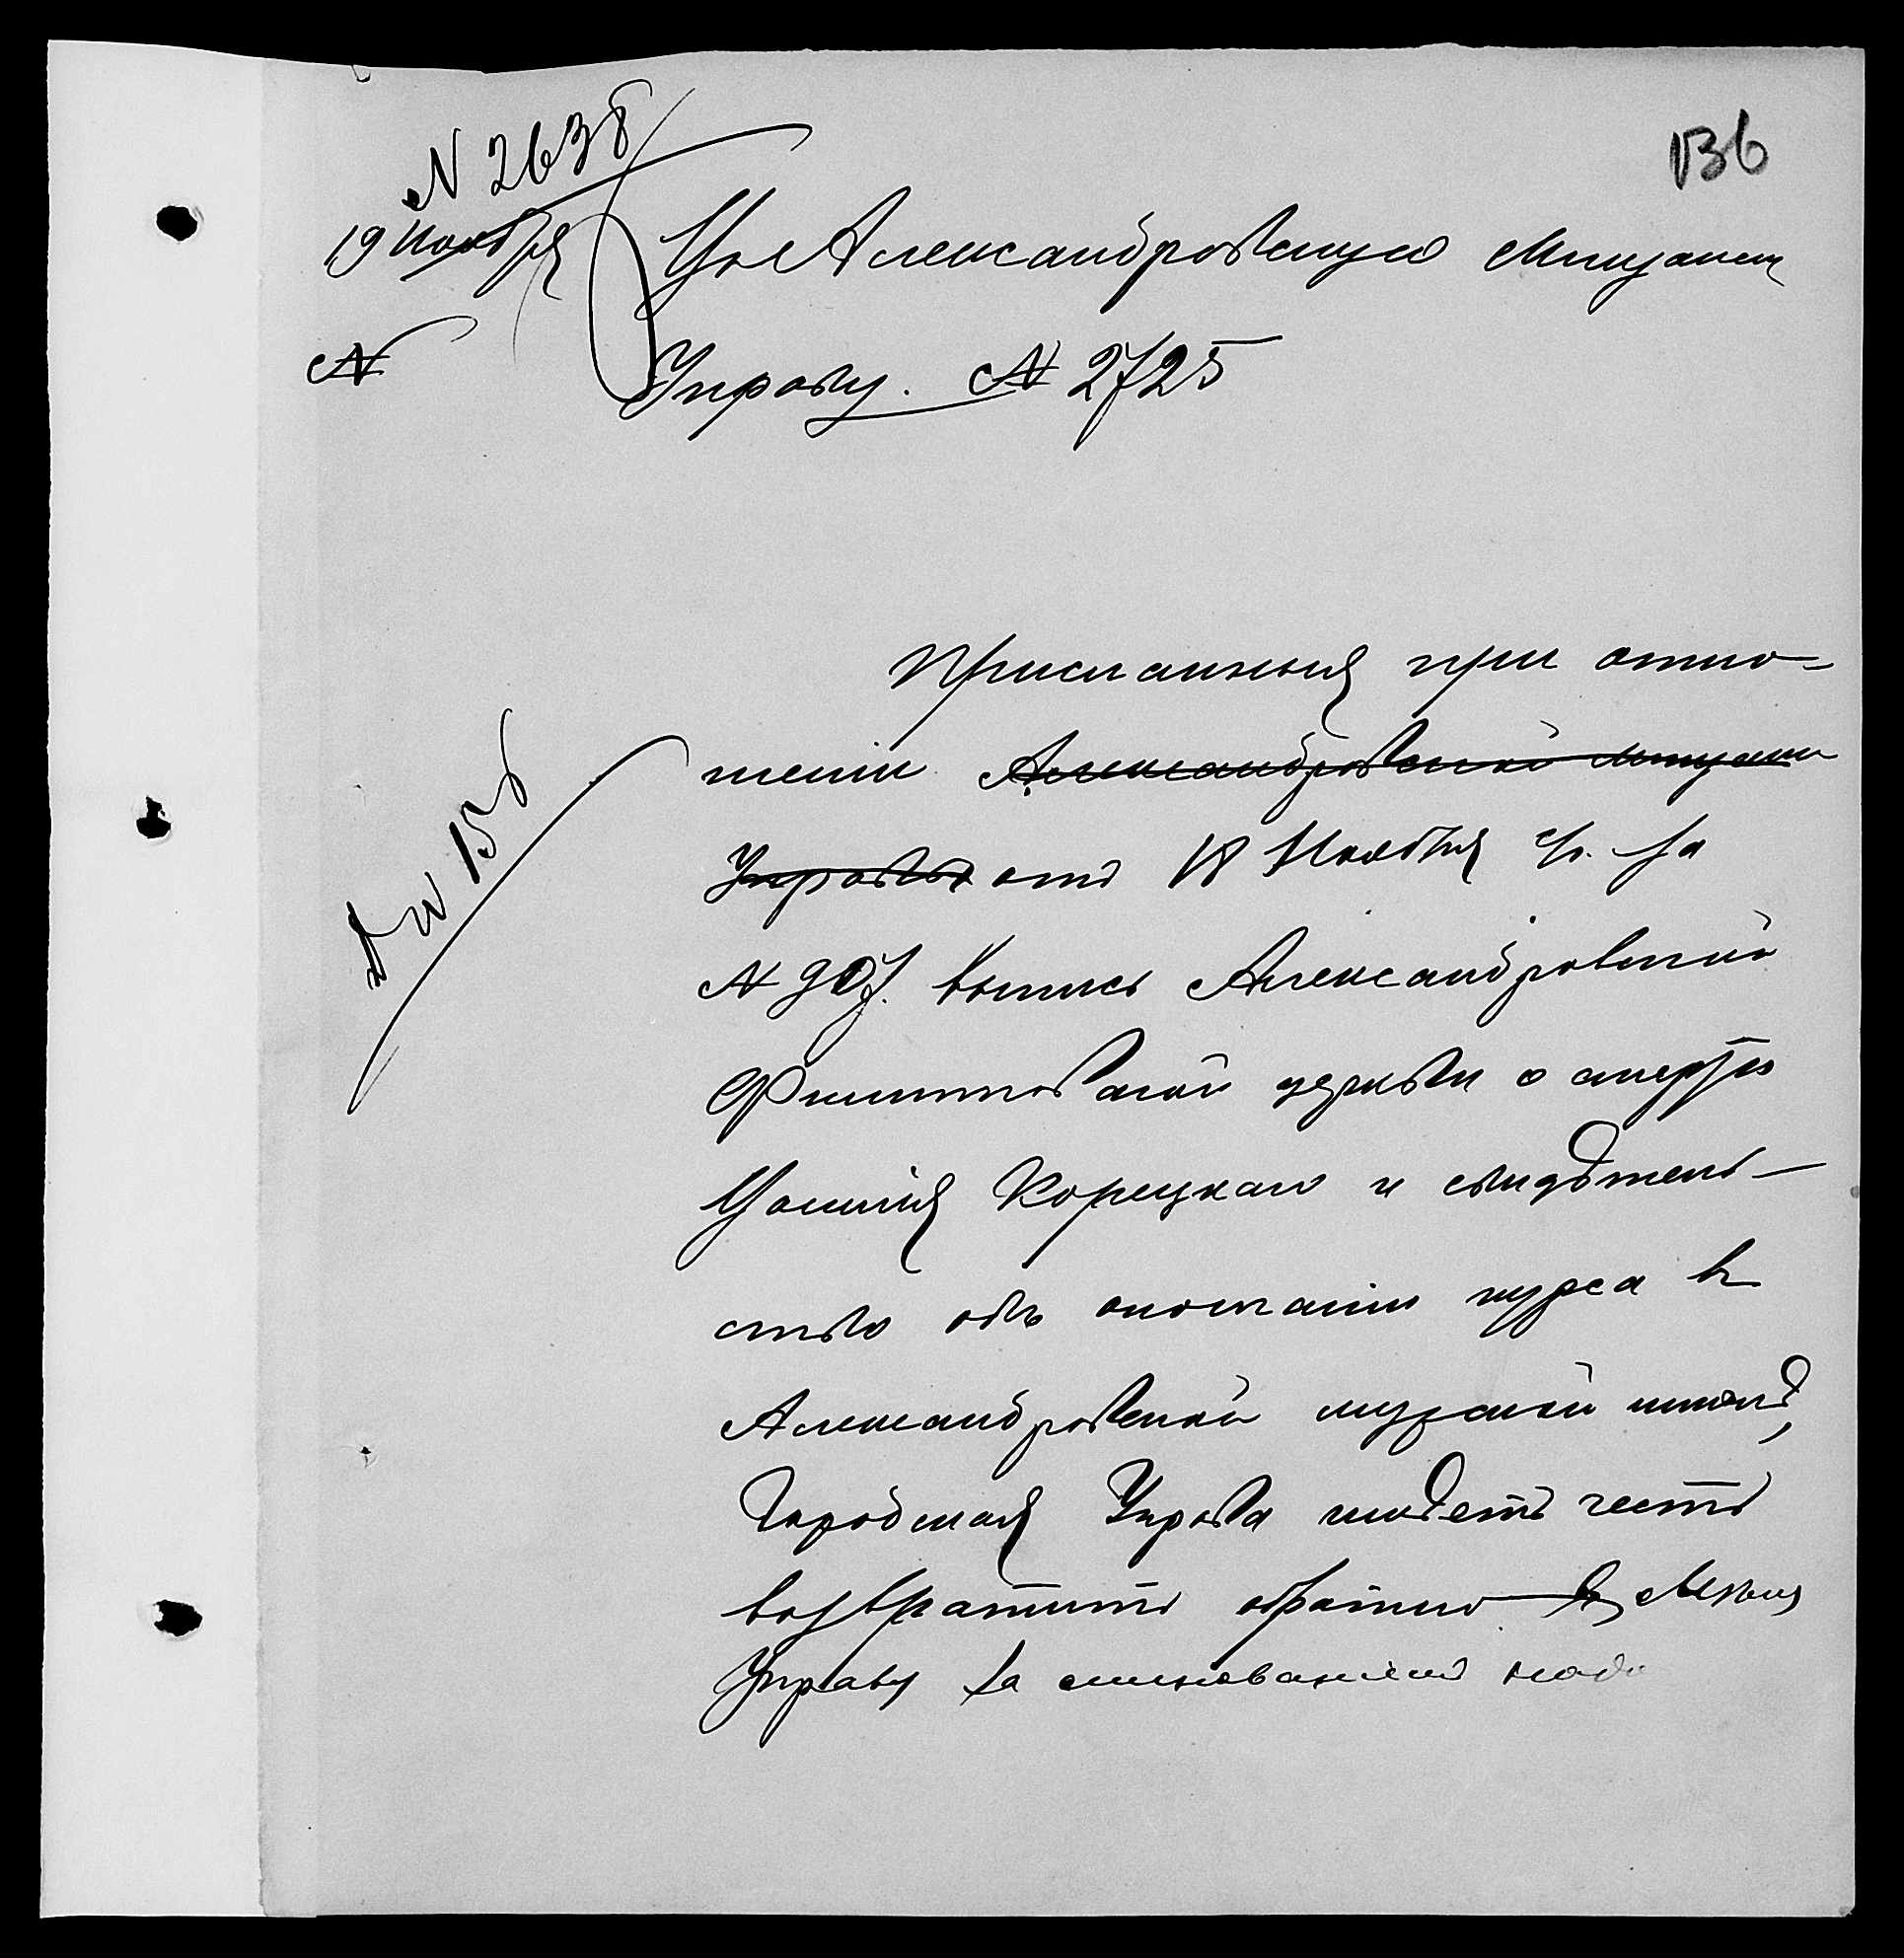 N 2638
136
19 Ноября
Въ Александровскую Мещанск
N
Управу. N 2725
Присланныя при отно-
шеніи Александровской мещанск
Управы отъ 18 Ноября с/г. за
Д N 156
N 907. выпись Александровской
церкви о смерти
Корецкаго и свидѣтель-
ство объ окончаніи курса въ
Александровской мужской школѣ,
Городская Управа имѣетъ честь
возвратить обратно въ
Управу за